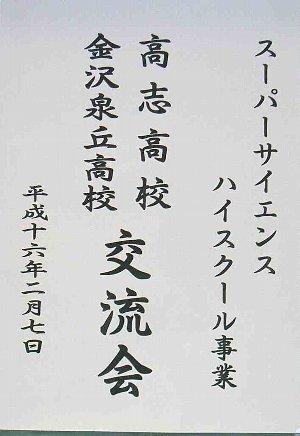 スーパーサイエンス
ハイスクール事業
高志高校
金沢泉丘高校
交流会
平成十六年二月七日